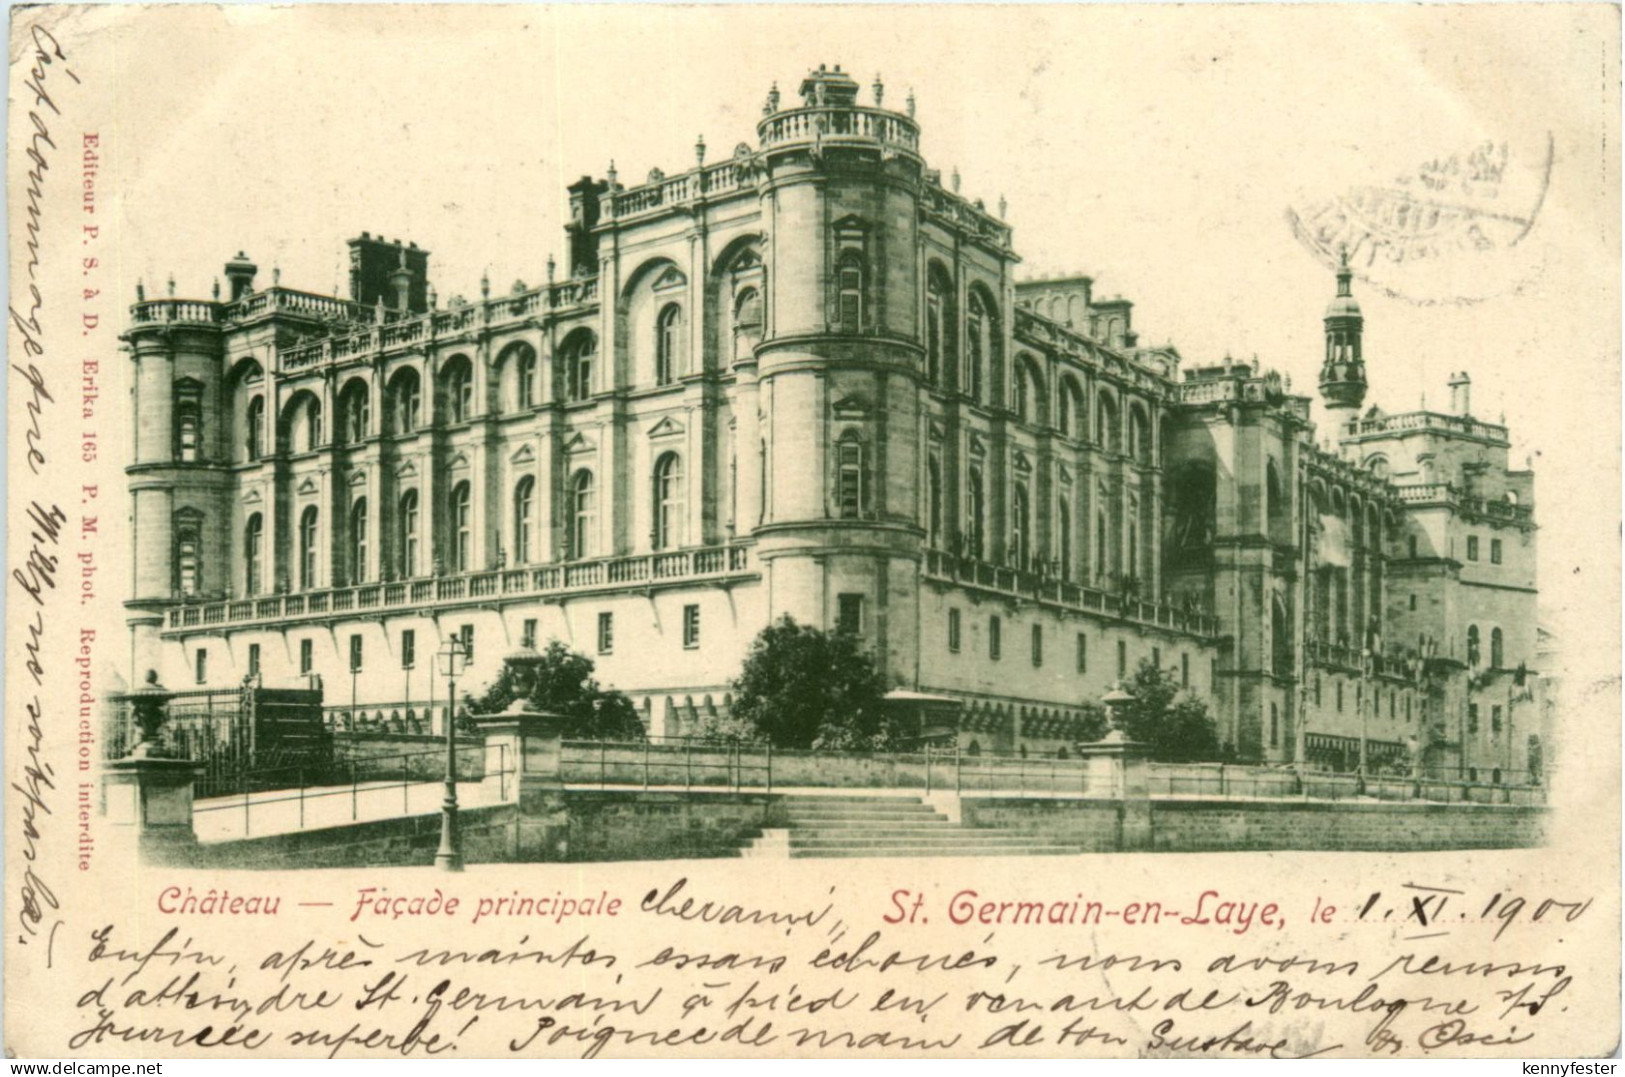 C'est dommage que Willy ne soit pas là.
Editeur P. S. à D. Erika 165 P. M. phot. Reproduction interdite
Château — Façade principale
Cher ami,
St. Germain-en-Laye, le 1. XI. 1900
Enfin, après maintes essais échoués, nous avons réussis
d'atteindre St. Germain à pied en venant de Boulogne s/S.
Journée superbe! Poignée de main de ton Gustave & Osci
delcampe.net
kennyfester